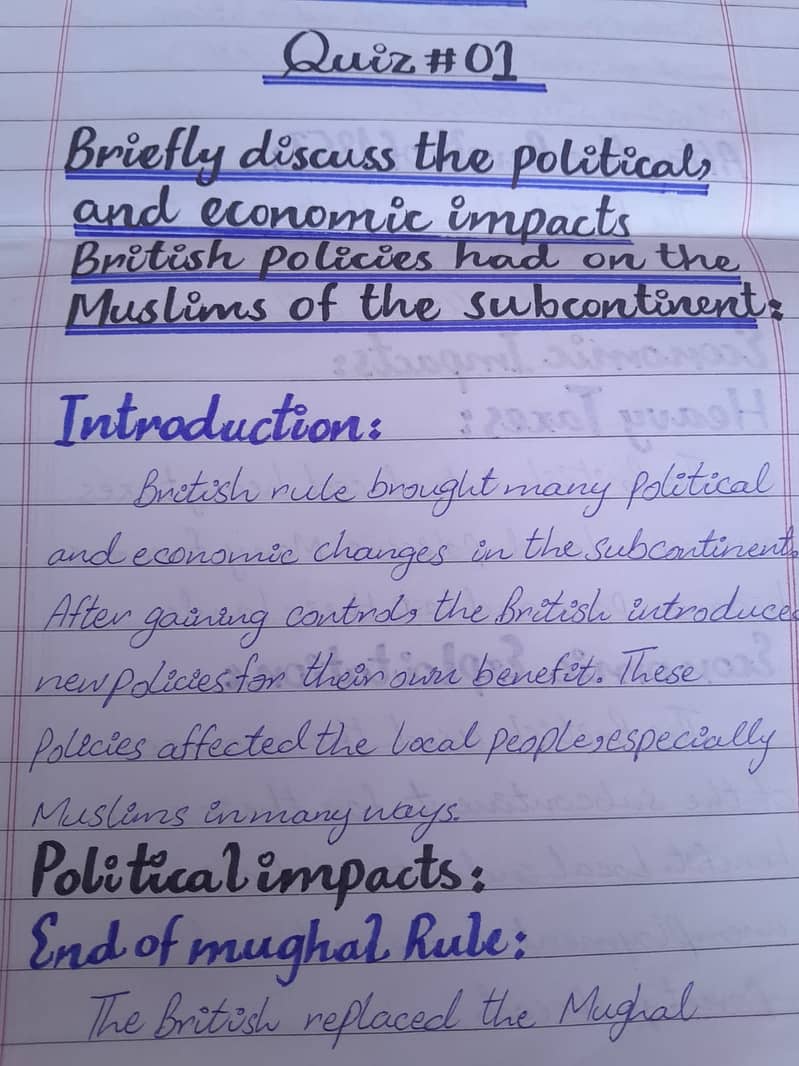 Quiz #01
Briefly discuss the political,
and economic impacts
British policies had on the
Muslims of the subcontinent:
Introduction:
British rule brought many political
and economic changes in the subcontinent.
After gaining control, the British introduced
new policies for their own benefit. These
Policies affected the local people, especially
Muslims in many ways.
Political impacts:
End of mughal Rule:
The British replaced the Mughal